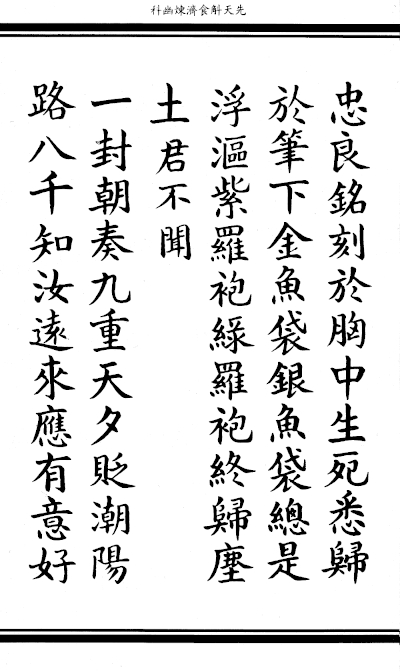 先天斛食濟煉幽科
忠良銘刻於胸中生死悉歸
於筆下金魚袋銀魚袋總是
浮漚紫羅袍綠羅袍終歸塵
土君不聞
一封朝奏九重天夕貶潮陽
路八千知汝遠來應有意好